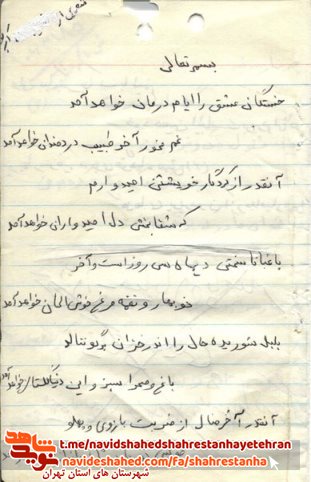 شعری از
بسمه تعالی
خستگان عشق را ایام درمان خواهد آمد
غم مخور آخر طبیب دردمندان خواهد آمد
آنقدر از کردگار خویشتن امیدوارم
که شفابخش دل امیدواران خواهد آمد
باغبانا سختی دیماه سی روز است و آخر
نوبهار و نغمه مرغ خوش الحان خواهد آمد
بلبل شوریده حال را از خزان برگو ننالد
باغ و صحرا سبز و این دنیا گلستان خواهد آمد
آنقدر آخر منال از ضربت بازوی و پهلو
شاهد
نوید
t.me/navidshahedshahrestanhayetehran
facebook.com/fa/shahrestanha
شهرستان های استان تهران